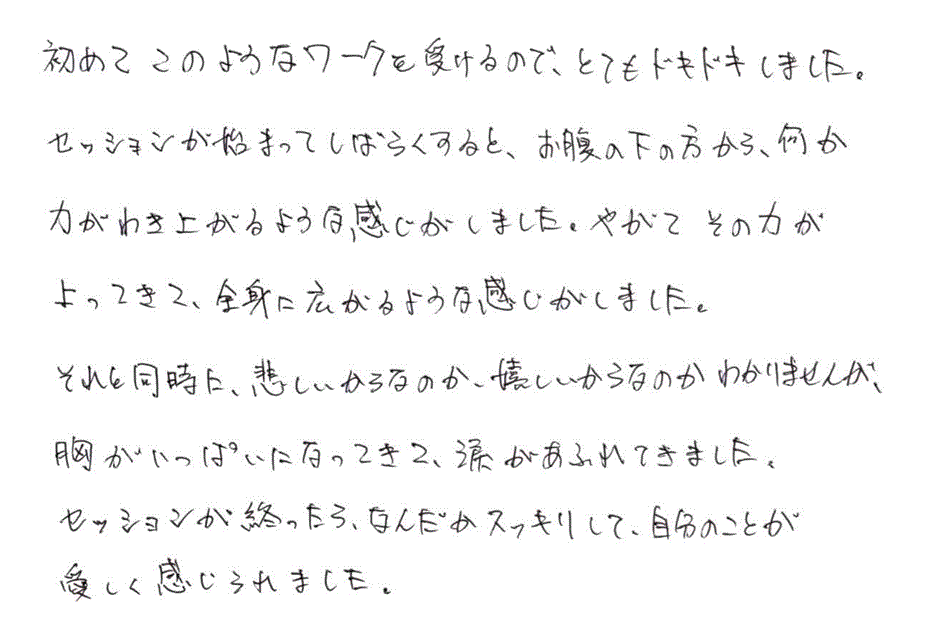 初めてこのようなワークを受けるので、とてもドキドキしました。
セッションが始まってしばらくすると、お腹の下の方から、何か
力がわき上がるような感じがしました。やがてその力が
よってきて、全身に広がるような感じがしました。
それと同時に、悲しいからなのか、嬉しいからなのかわかりませんが、
胸がいっぱいになってきて、涙があふれてきました。
セッションが終ったら、なんだかスッキリして、自分のことが
愛しく感じられました。